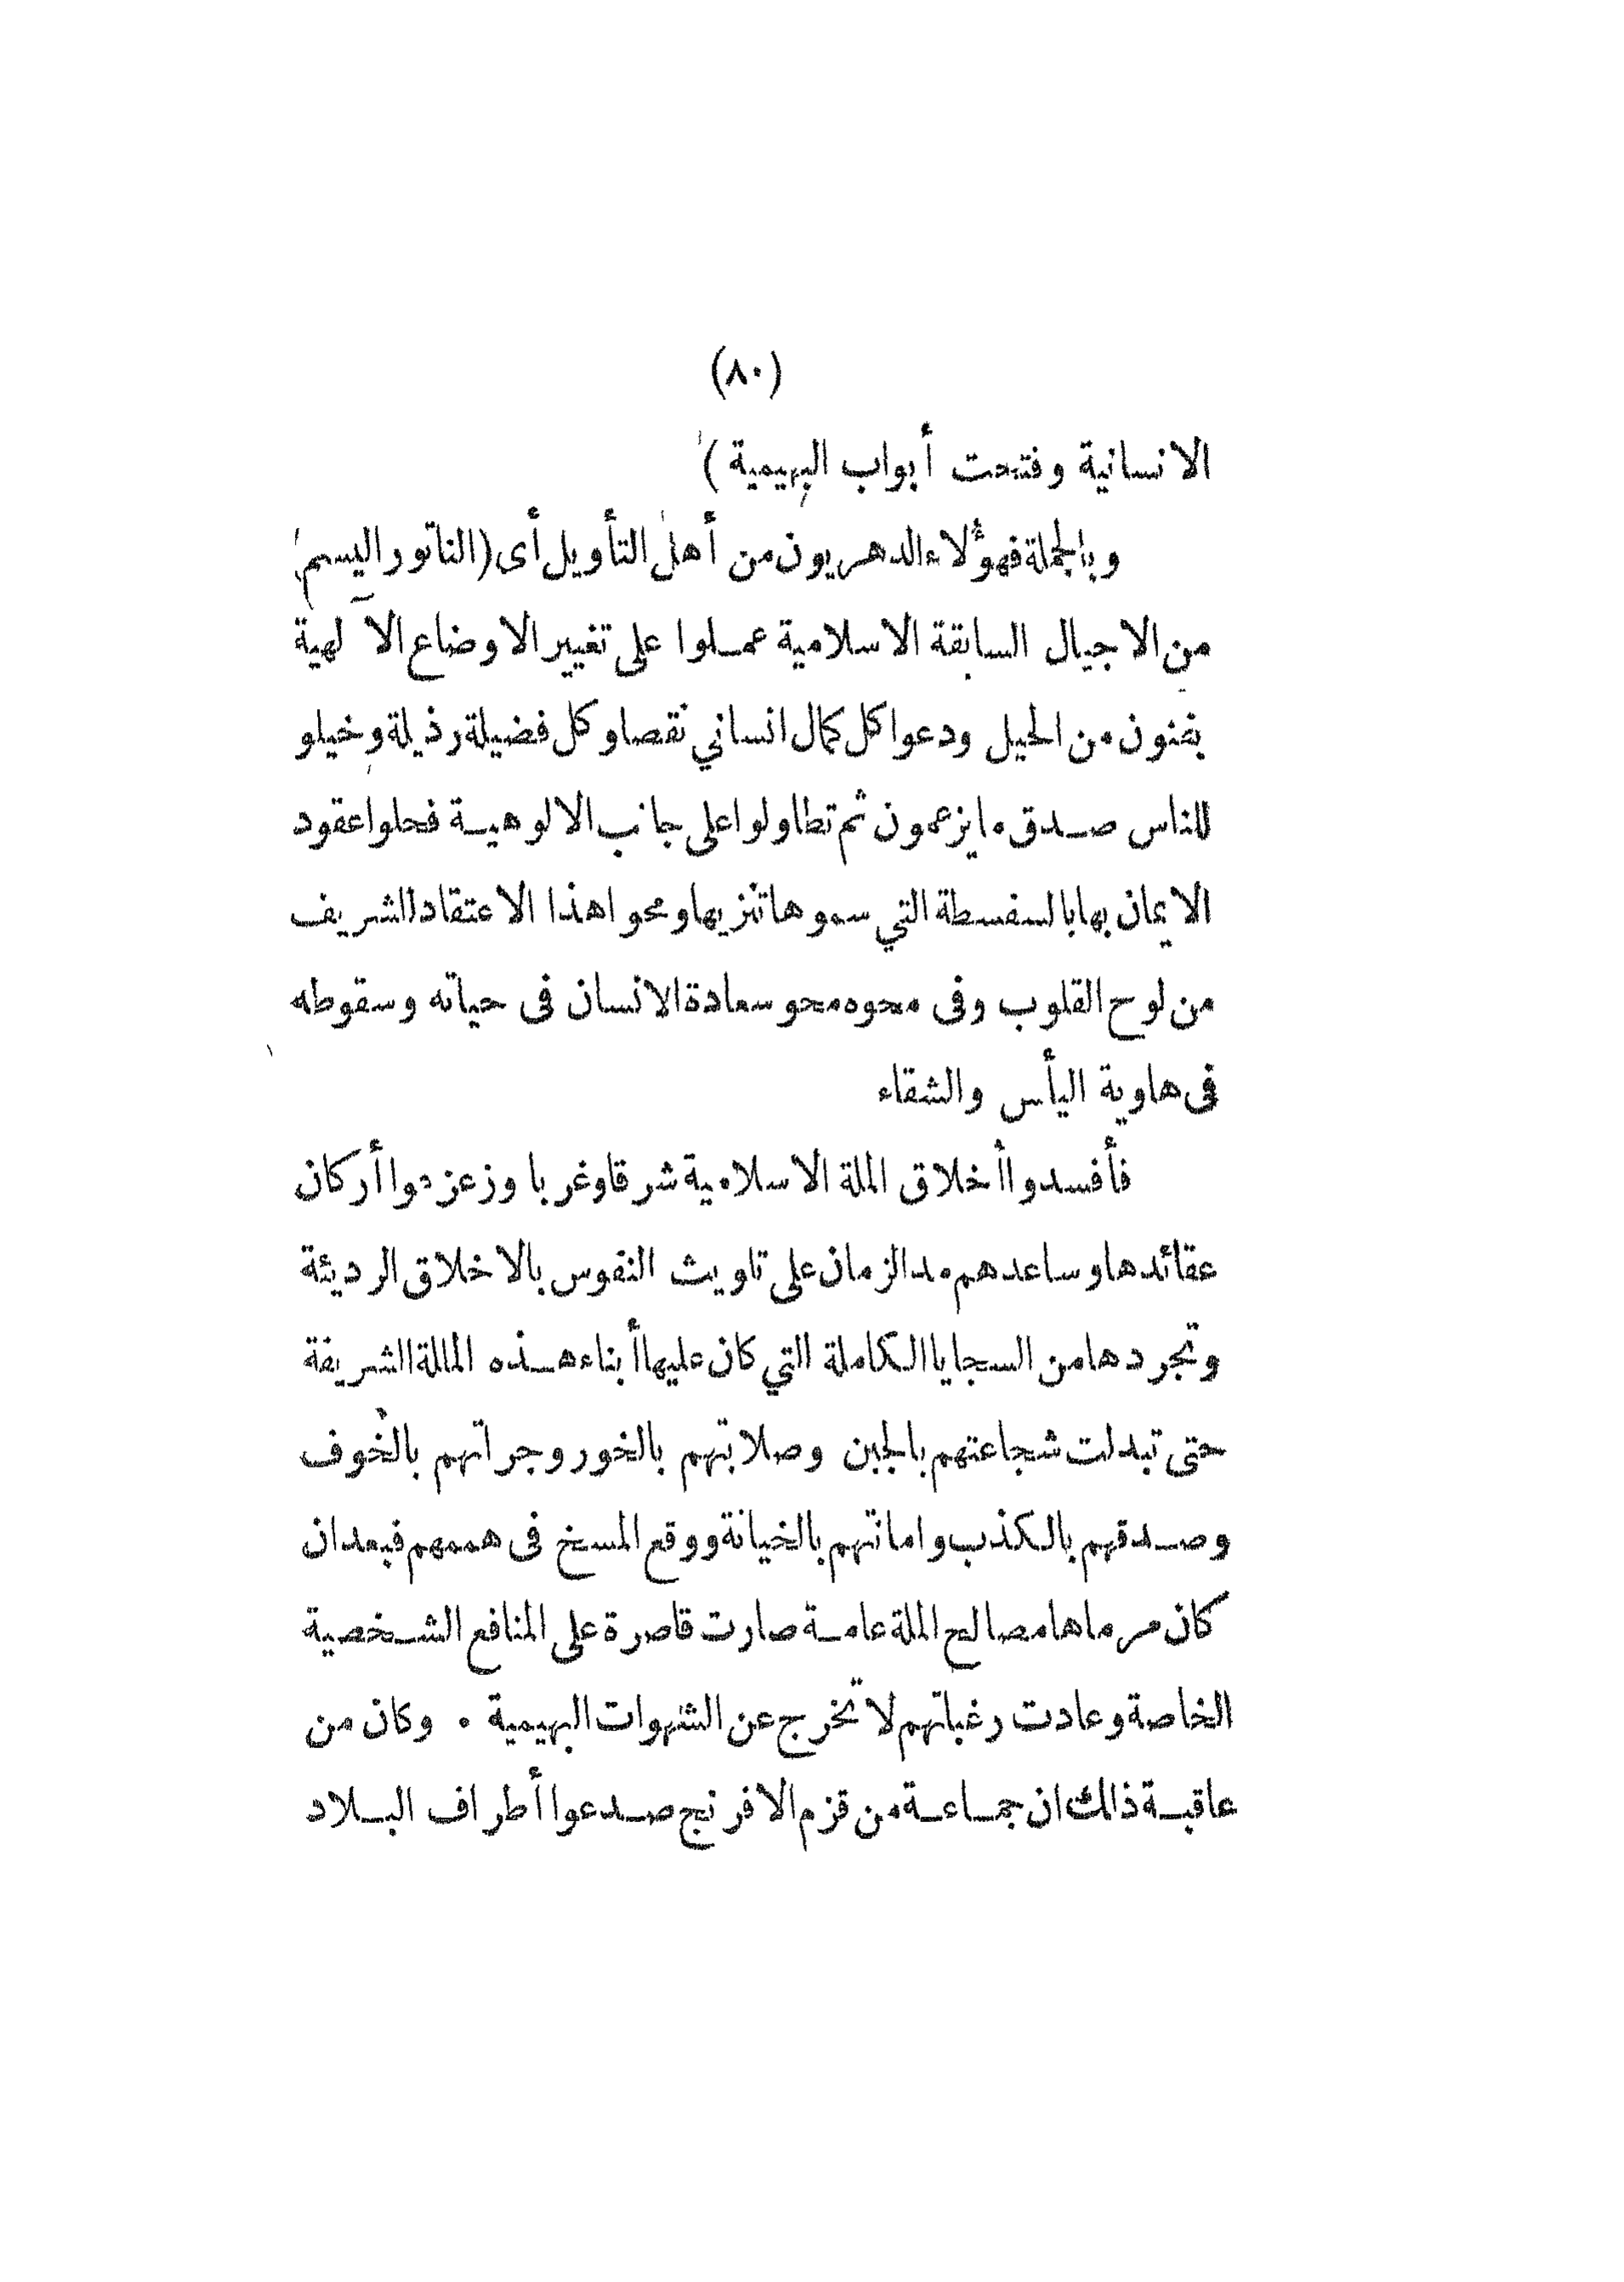 (٨٠)
الانسانية وفتحت أبواب البهيمية )
وبالجملة فهؤلاء الدهريون من أهل التأويل أى (الناتوراليسم)
من الاجيال السابقة الاسلامية عملوا على تغيير الاوضاع الآلهية
بفنون من الحيل ودعوا كل كمال انساني نقصا وكل فضيلة رذيلة وخيلو
للناس صدق ما يزعمون ثم تطاولوا على جانب الالوهية فحلوا عقود
الايمان بها بالسفسطة التي سموها تنزيها ومحوا هذا الاعتقاد الشريف
من لوح القلوب وفى محوه محو سعادة الانسان فى حياته وسقوطه
فى هاوية اليأس والشقاء
فأفسدوا أخلاق الملة الاسلامية شرقا وغربا وزعزعوا أركان
عقائدها وساعدهم مد الزمان على تلويث النفوس بالاخلاق الرديئة
وتجردها من السجايا الكاملة التي كان عليها أبناء هذه الملة الشريفة
حتى تبدلت شجاعتهم بالجبن وصلابتهم بالخور وجراتهم بالخوف
وصدقهم بالكذب وامانتهم بالخيانة ووقع المسخ فى هممهم فبعد ان
كان مرماها مصالح الملة عامة صارت قاصرة على المنافع الشخصية
الخاصة وعادت رغباتهم لا تخرج عن الشهوات البهيمية . وكان من
عاقبة ذلك ان جماعة من قزم الافرنج صدعوا أطراف البلاد